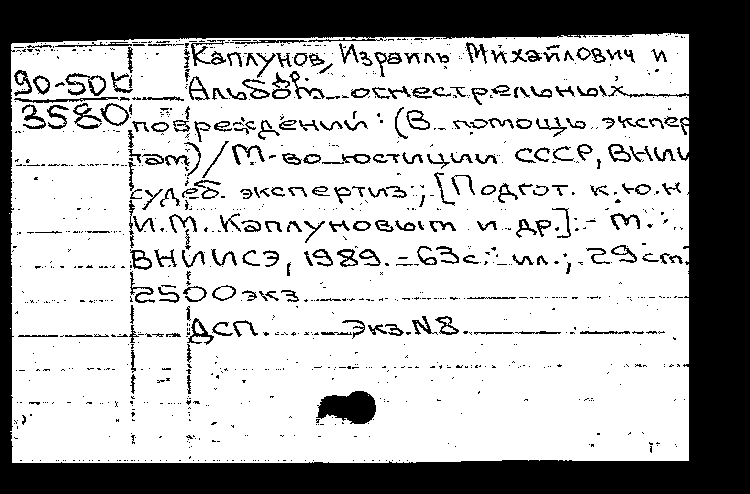 Каплунов, Израиль Михайлович и
др.
90-50к
Альбом огнестрельных
3580
повреждений: (В помощь экспер
там) / М-во юстиции СССР, ВНИИ
судеб. экспертиз; [Подгот. к.ю.н.
И.М. Каплуновым и др.]. - М.:
ВНИИСЭ, 1989. - 63с.: ил.; 29см.
2500 экз.
ДСП. Экз.N8.